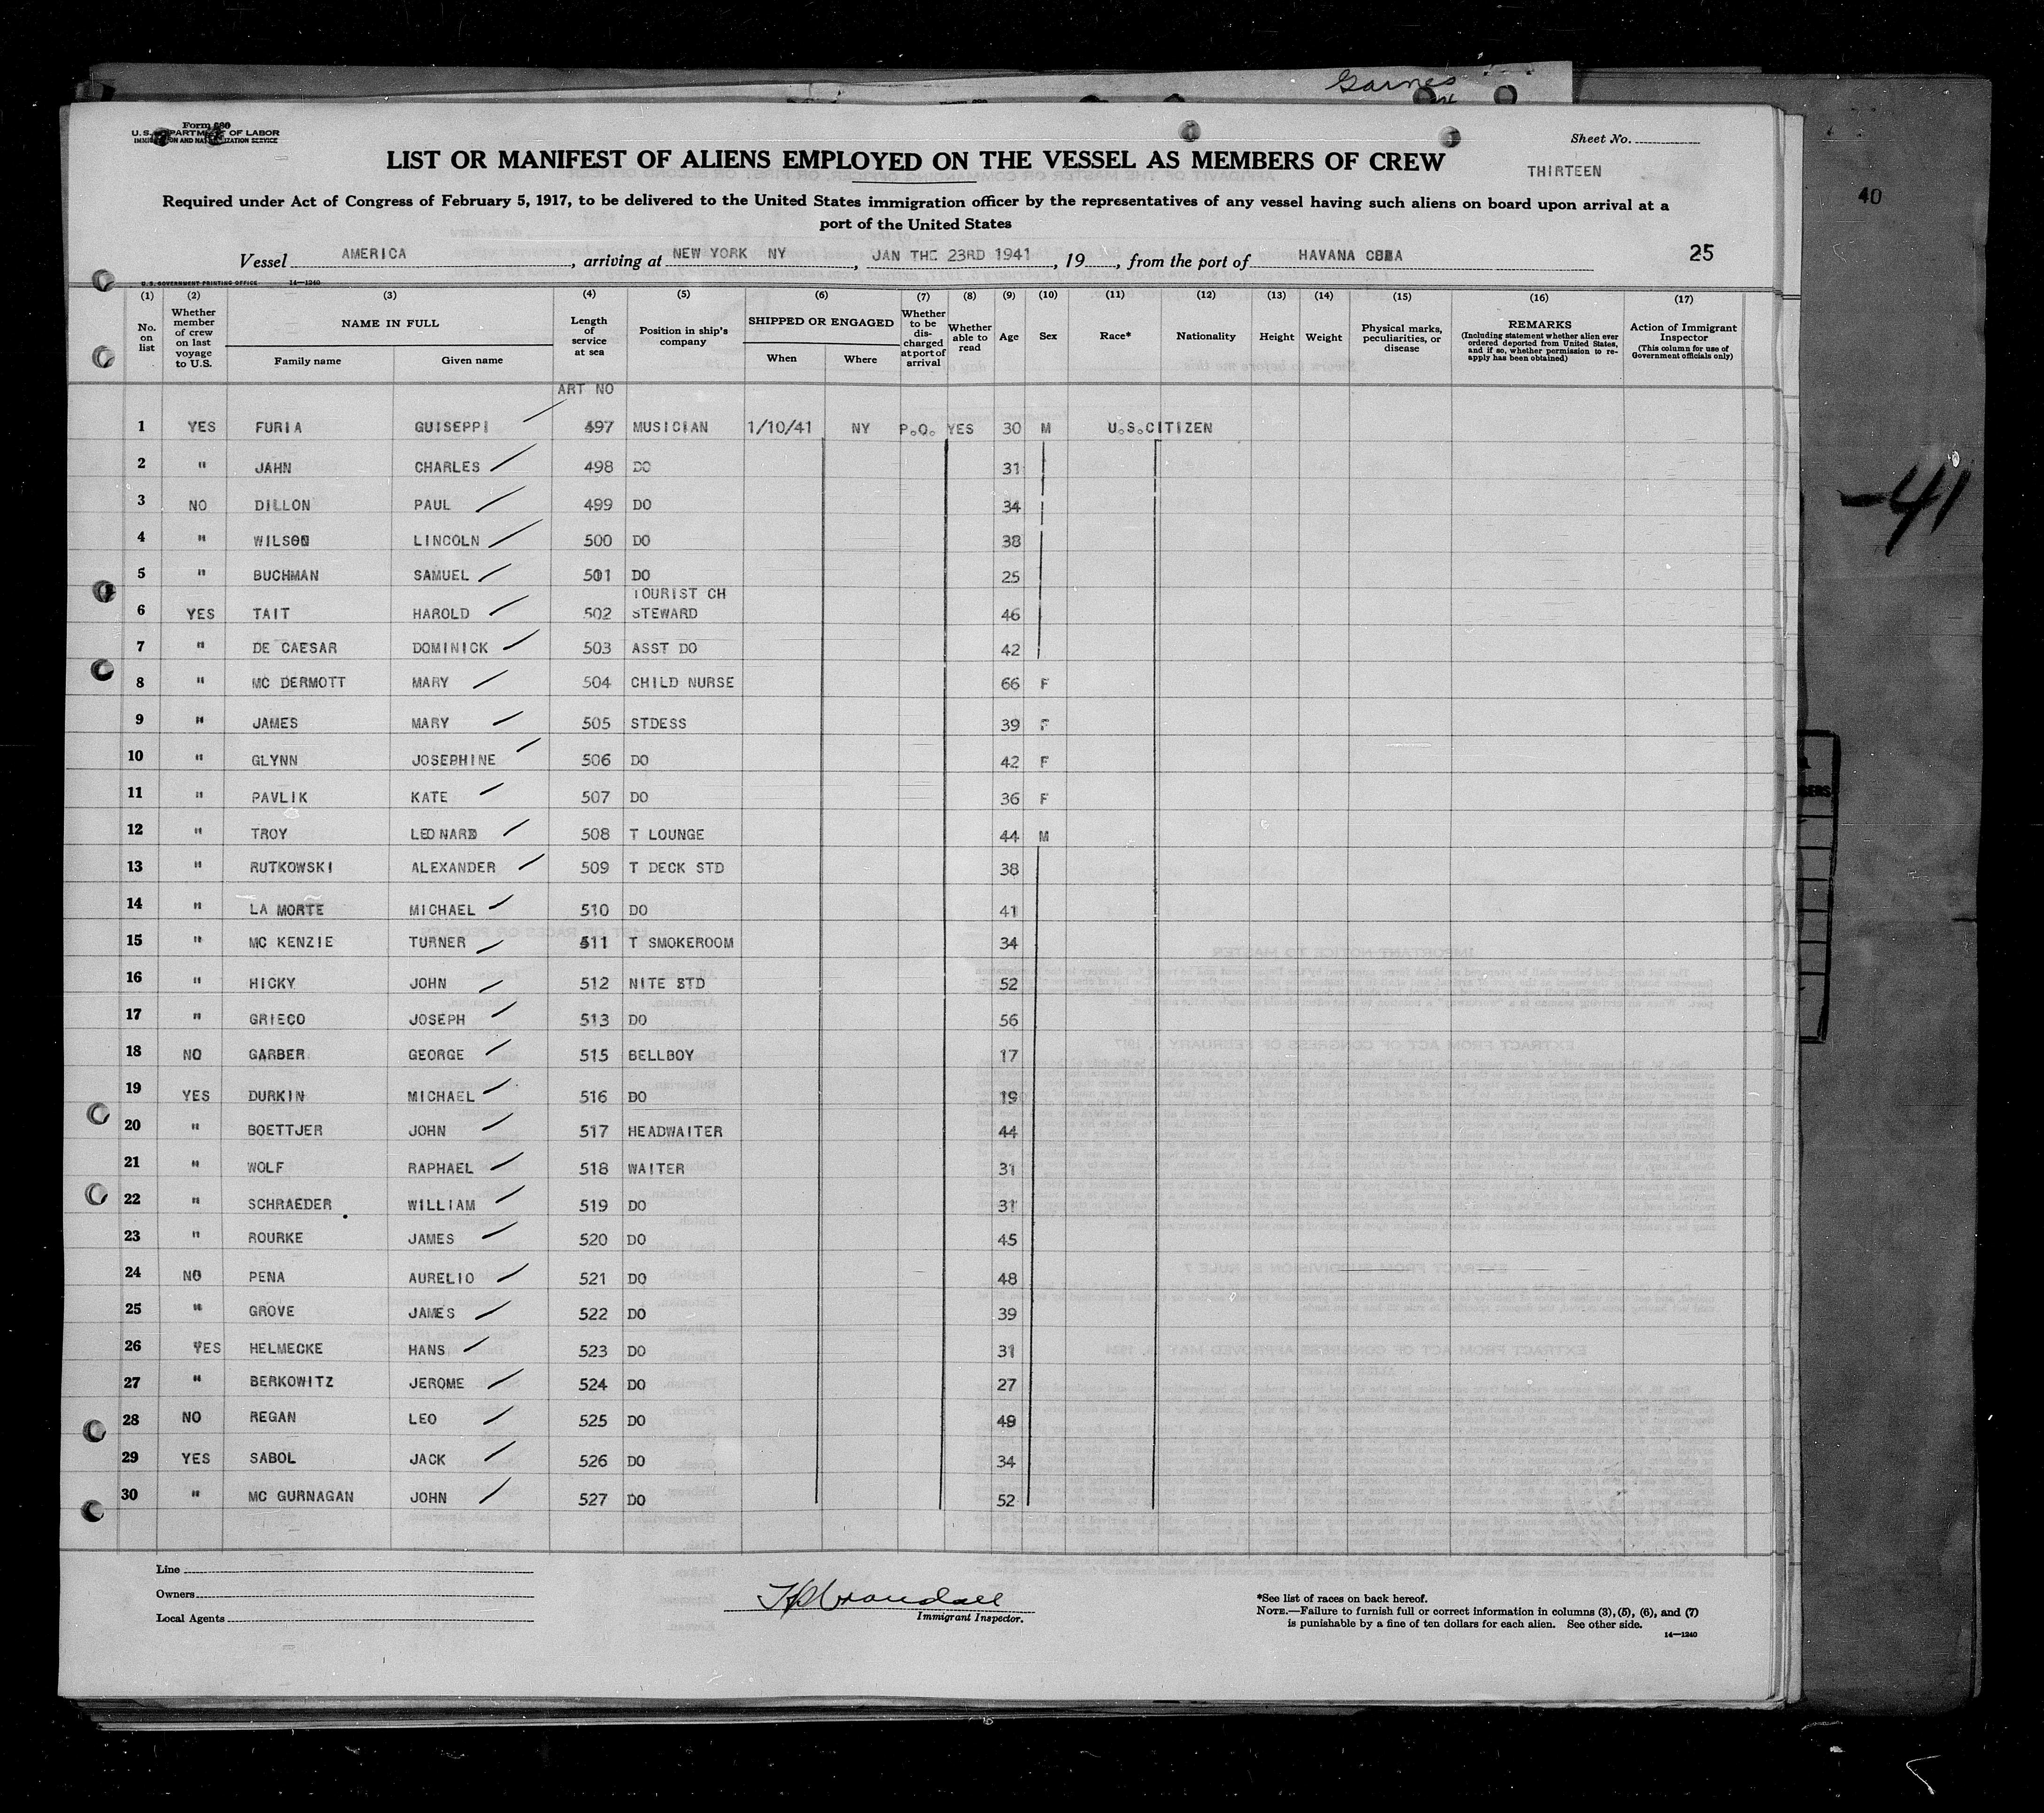 Garnes
Form 680
U.S. DEPARTMENT OF LABOR
IMMIGRATION AND NATURALIZATION SERVICE
Sheet No.
THIRTEEN
LIST OR MANIFEST OF ALIENS EMPLOYED ON THE VESSEL AS MEMBERS OF CREW
40
Required under Act of Congress of February 5, 1917, to be delivered to the United States immigration officer by the representatives of any vessel having such aliens on board upon arrival at a
port of the United States
Vessel AMERICA, arriving at NEW YORK NY, JAN THE 23RD 1941, 19, from the port of HAVANA CUBA
25
U.S. GOVERNMENT PRINTING OFFICE 14—1240
(1) (2) (3) (4) (5) (6) (7) (8) (9) (10) (11) (12) (13) (14) (15) (16) (17)
No. on list
Whether member of crew on last voyage to U.S.
NAME IN FULL
Family name
Given name
Length of service at sea
Position in ship's company
SHIPPED OR ENGAGED
When
Where
Whether to be discharged at port of arrival
Whether able to read
Age
Sex
Race*
Nationality
Height
Weight
Physical marks, peculiarities, or disease
REMARKS
(Including statement whether alien ever ordered deported from United States, and if so, whether permission to reapply has been obtained)
Action of Immigrant Inspector
(This column for use of Government officials only)
ART NO
1 YES FURIA GUISEPPI 497 MUSICIAN 1/10/41 NY P.O. YES 30 M U.S.CITIZEN
2 " JAHN CHARLES 498 DO 31
3 NO DILLON PAUL 499 DO 34
4 " WILSON LINCOLN 500 DO 38
5 " BUCHMAN SAMUEL 501 DO 25
6 YES TAIT HAROLD 502 TOURIST CH STEWARD 46
7 " DE CAESAR DOMINICK 503 ASST DO 42
8 " MC DERMOTT MARY 504 CHILD NURSE 66 F
9 " JAMES MARY 505 STDESS 39 F
10 " GLYNN JOSEPHINE 506 DO 42 F
11 " PAVLIK KATE 507 DO 36 F
12 " TROY LEONARD 508 T LOUNGE 44 M
13 " RUTKOWSKI ALEXANDER 509 T DECK STD 38
14 " LA MORTE MICHAEL 510 DO 41
15 " MC KENZIE TURNER 511 T SMOKEROOM 34
16 " HICKY JOHN 512 NITE STD 52
17 " GRIECO JOSEPH 513 DO 56
18 NO GARBER GEORGE 515 BELLBOY 17
19 YES DURKIN MICHAEL 516 DO 19
20 " BOETTJER JOHN 517 HEADWAITER 44
21 " WOLF RAPHAEL 518 WAITER 31
22 " SCHRAEDER WILLIAM 519 DO 31
23 " ROURKE JAMES 520 DO 45
24 NO PENA AURELIO 521 DO 48
25 " GROVE JAMES 522 DO 39
26 YES HELMECKE HANS 523 DO 31
27 " BERKOWITZ JEROME 524 DO 27
28 NO REGAN LEO 525 DO 49
29 YES SABOL JACK 526 DO 34
30 " MC GURNAGAN JOHN 527 DO 52
-41
Line
Owners
Local Agents
Immigrant Inspector.
*See list of races on back hereof.
NOTE.—Failure to furnish full or correct information in columns (3), (5), (6), and (7)
is punishable by a fine of ten dollars for each alien. See other side.
14—1240